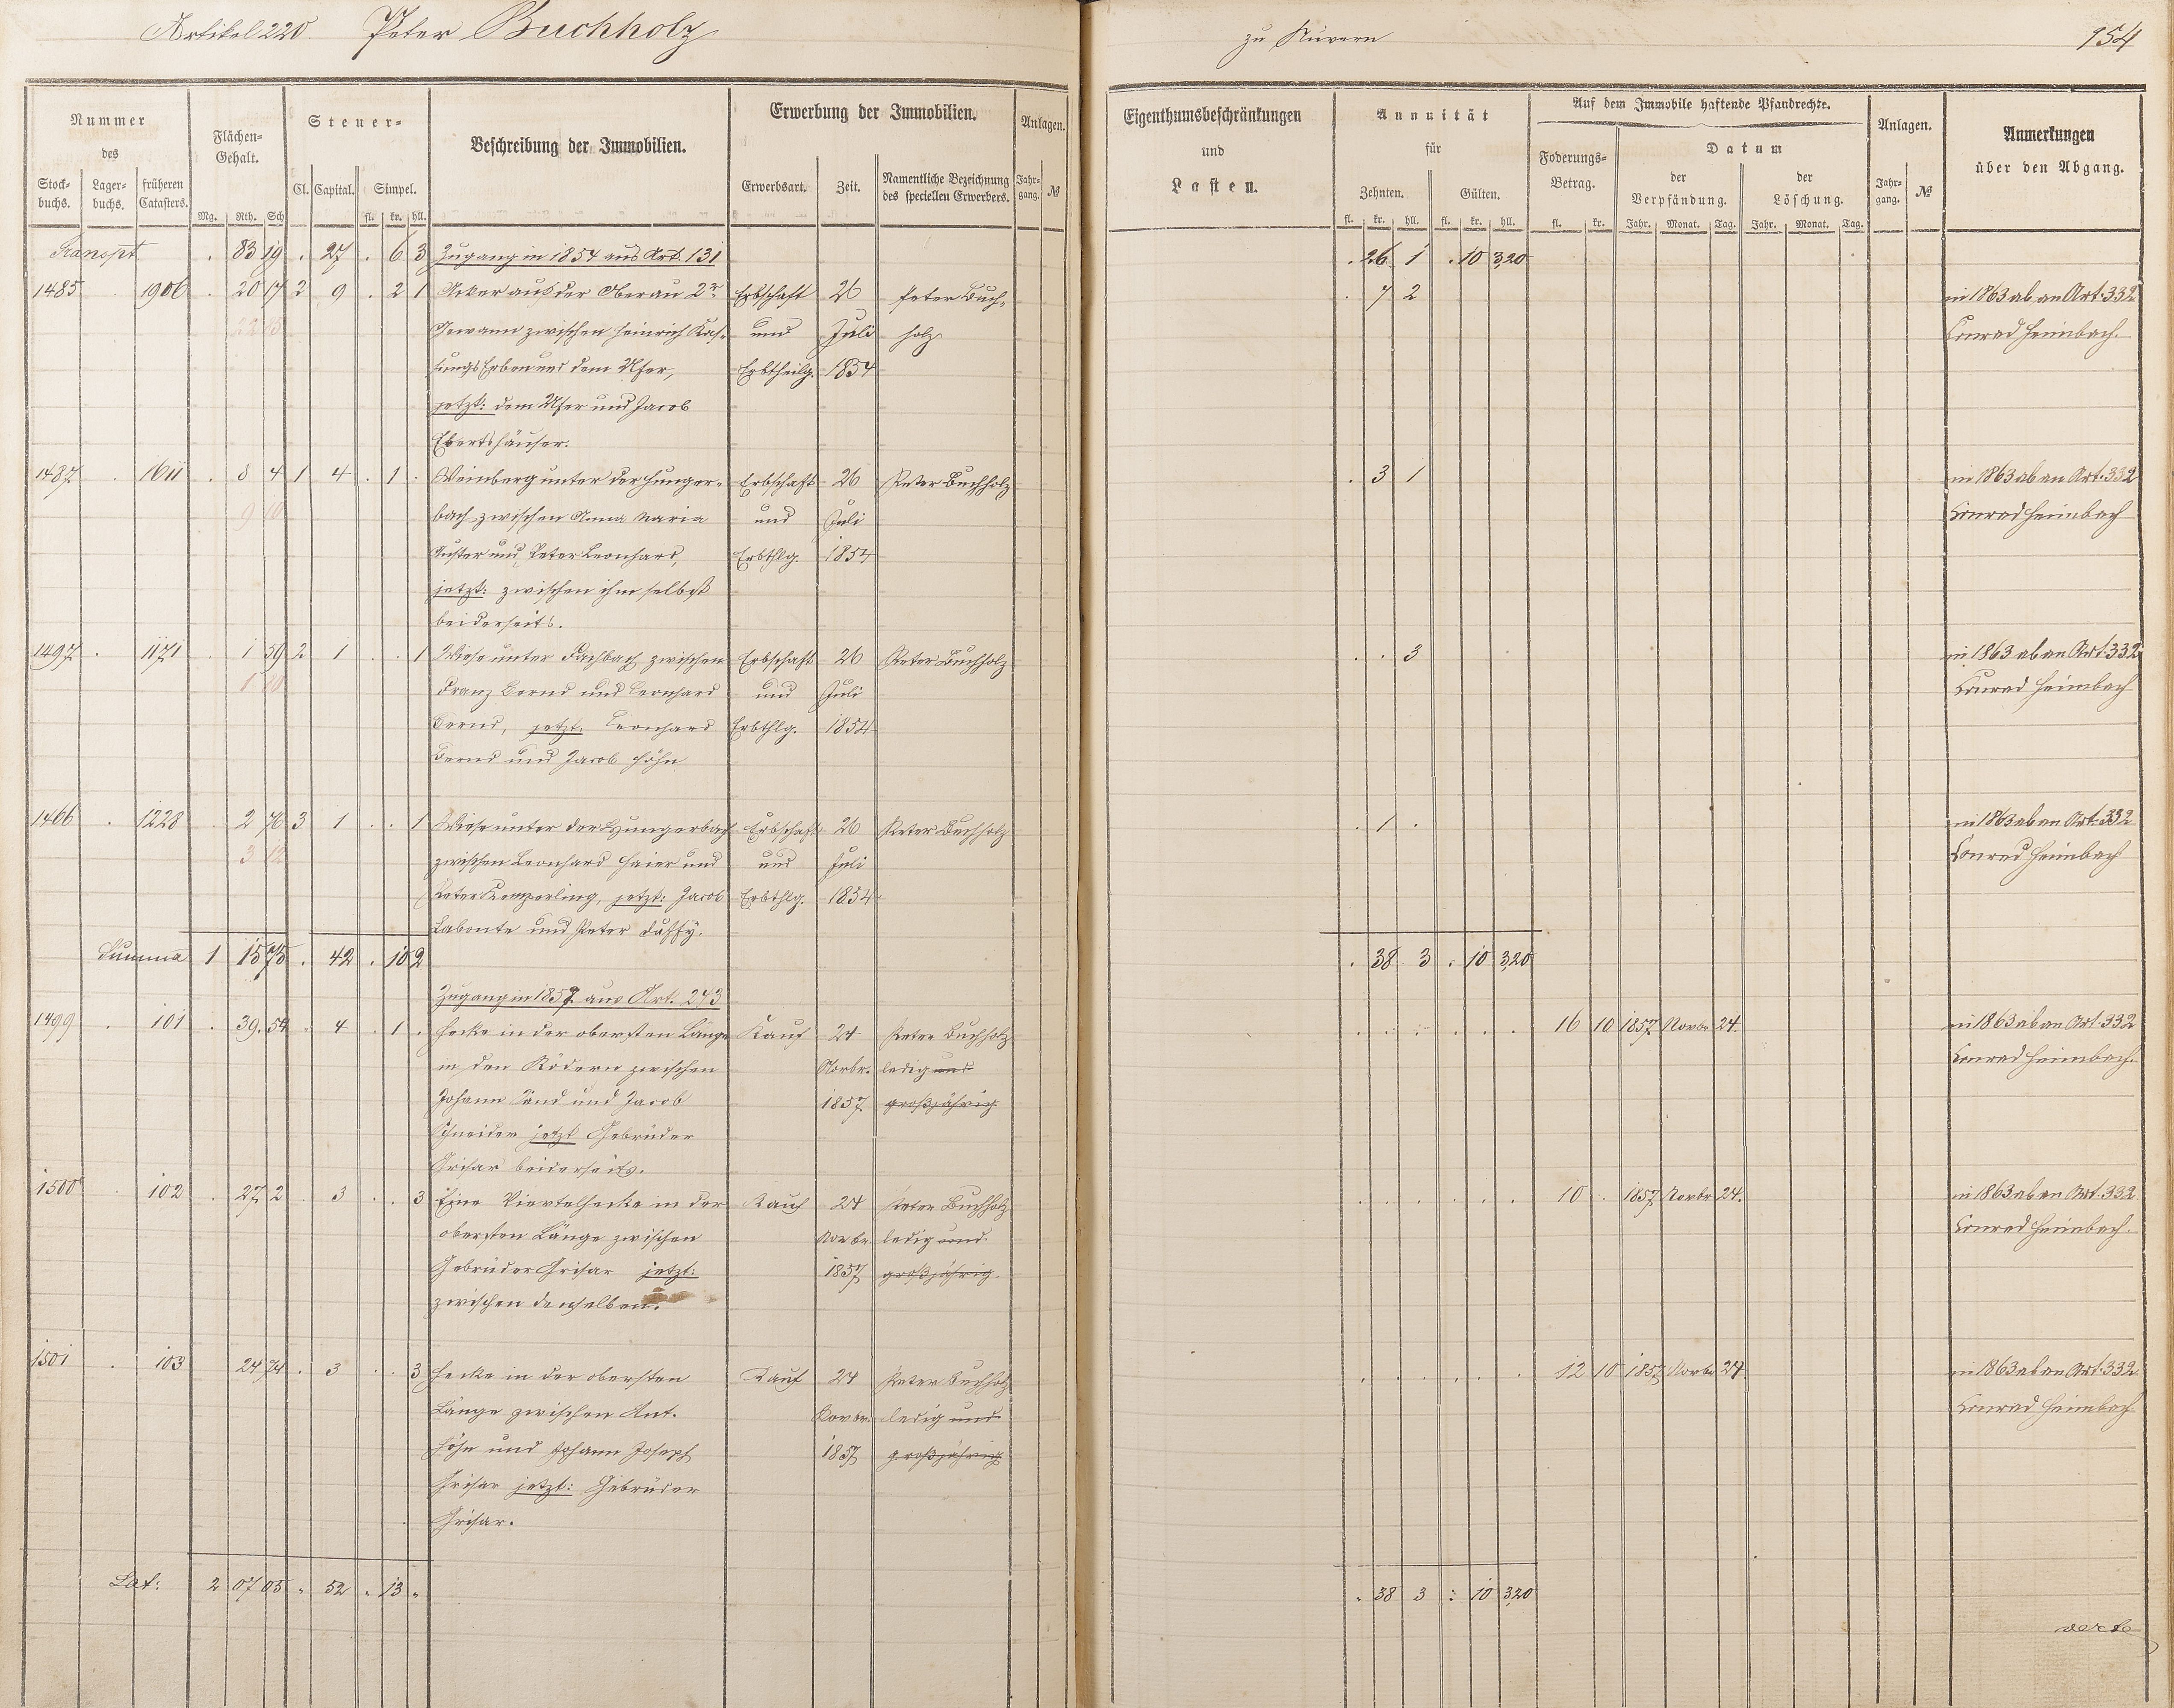 Artikel 220. Peter Buchholz
zu Küvern 154
Nummer des
Stock-buchs. Lager-buchs. früheren Catasters.
Flächen-Gehalt.
Mg. Rth. Sch
Steuer-
Cl. Capital. Simpel.
fl. kr. hll.
Beschreibung der Immobilien.
Erwerbung der Immobilien.
Erwerbsart. Zeit. Namentliche Bezeichnung des speciellen Erwerbers.
Anlagen.
Jahr-gang. №
Eigenthumsbeschränkungen und Lasten.
Annuität für
Zehnten. Gülten.
fl. kr. hll. fl. kr. hll.
Auf dem Immobile haftende Pfandrechte.
Foderungs-Betrag. Datum
der Verpfändung. der Löschung.
fl. kr. Jahr. Monat. Tag. Jahr. Monat. Tag.
Anlagen.
Jahr-gang. №
Anmerkungen über den Abgang.
Transpt . 83 19 . 27 . 6 3 Zugang in 1854 aus Art. 131 . 26 1 . 10 3,20
1485 . 1906 . 20 17 2 9 . 2 1 Acker aus der Oberau 2r Erbschaft 26 Peter Buch- . 7 2 in 1863 ab an Art. 332
Gewann zwischen Heinrich Kas- und Juli holz Conrad Heimbach.
tungs Erben und dem Ufer, Erbtheilg. 1854
jetzt: dem Ufer und Jacob
Ebertshäuser.
1487 . 1611 . 8 4 1 4 . 1 . Weinberg unter der Hunger- Erbschaft 26 Peter Buchholz . 3 1 in 1863 ab an Art. 332
bach zwischen Anna Maria und Juli Conrad Heimbach
und Peter Leonhard, Erbthlg. 1854
jetzt: zwischen ihm selbst
beiderseits.
1497 . 1171 . 1 59 2 1 . . 1 Wiese unter Fachbach zwischen Erbschaft 26 Peter Buchholz . . 3 in 1863 ab an Art. 332
Franz Bernd und Leonhard und Juli Conrad Heimbach
Bernd, jetzt: Leonhard Erbthlg. 1854
Bernd und Jacob Höhn
1466 . 1228 . 2 76 3 1 . . 1 Wiese unter der Hungerbach Erbschaft 26 Peter Buchholz . 1 . in 1863 ab an Art. 332
zwischen Leonhard Haier und und Juli Conrad Heimbach
Peter Kemperling, jetzt: Jacob Erbthlg. 1854
Labonte und Peter Duffy.
Summa 1 15 75 . 42 . 10 2 . 38 3 . 10 3,20
Zugang in 1857 aus Art. 243
1499 . 101 . 39. 54 . 4 . 1 . Hecke in der obersten Länge Kauf 24 Peter Buchholz . . . . . . 16 10 1857 Novbr 24. in 1863 ab an Art. 332
in den Rödern zwischen Novbr. ledig und Conrad Heimbach.
Johann Sand und Jacob 1857. großjährig
Schneider jetzt Gebrüder
Grisar beiderseits.
1500 . 102 . 27 2 . 3 . . 3 Eine Viertelhecke in der Kauf 24 Peter Buchholz . . . . . . 10 . 1857 Novbr 24. in 1863 ab an Art. 332
obersten Länge zwischen Novbr. ledig und Conrad Heimbach.
Gebrüder Grisar jetzt: 1857 großjährig
zwischen denselben.
1501 . 103 24 74 . 3 . . 3 Hecke in der obersten Kauf 24 Peter Buchholz . . . . . . 12 10 1857 Novbr 24 in 1863 ab an Art. 332
Länge zwischen Ant. Novbr. ledig und Conrad Heimbach
Höhn und Johann Joseph 1857 großjährig
Grisar jetzt: Gebrüder
Grisar.
Lat: 2 07 05 " 52 " 13 " . 38 3 : 10 3,20
verte